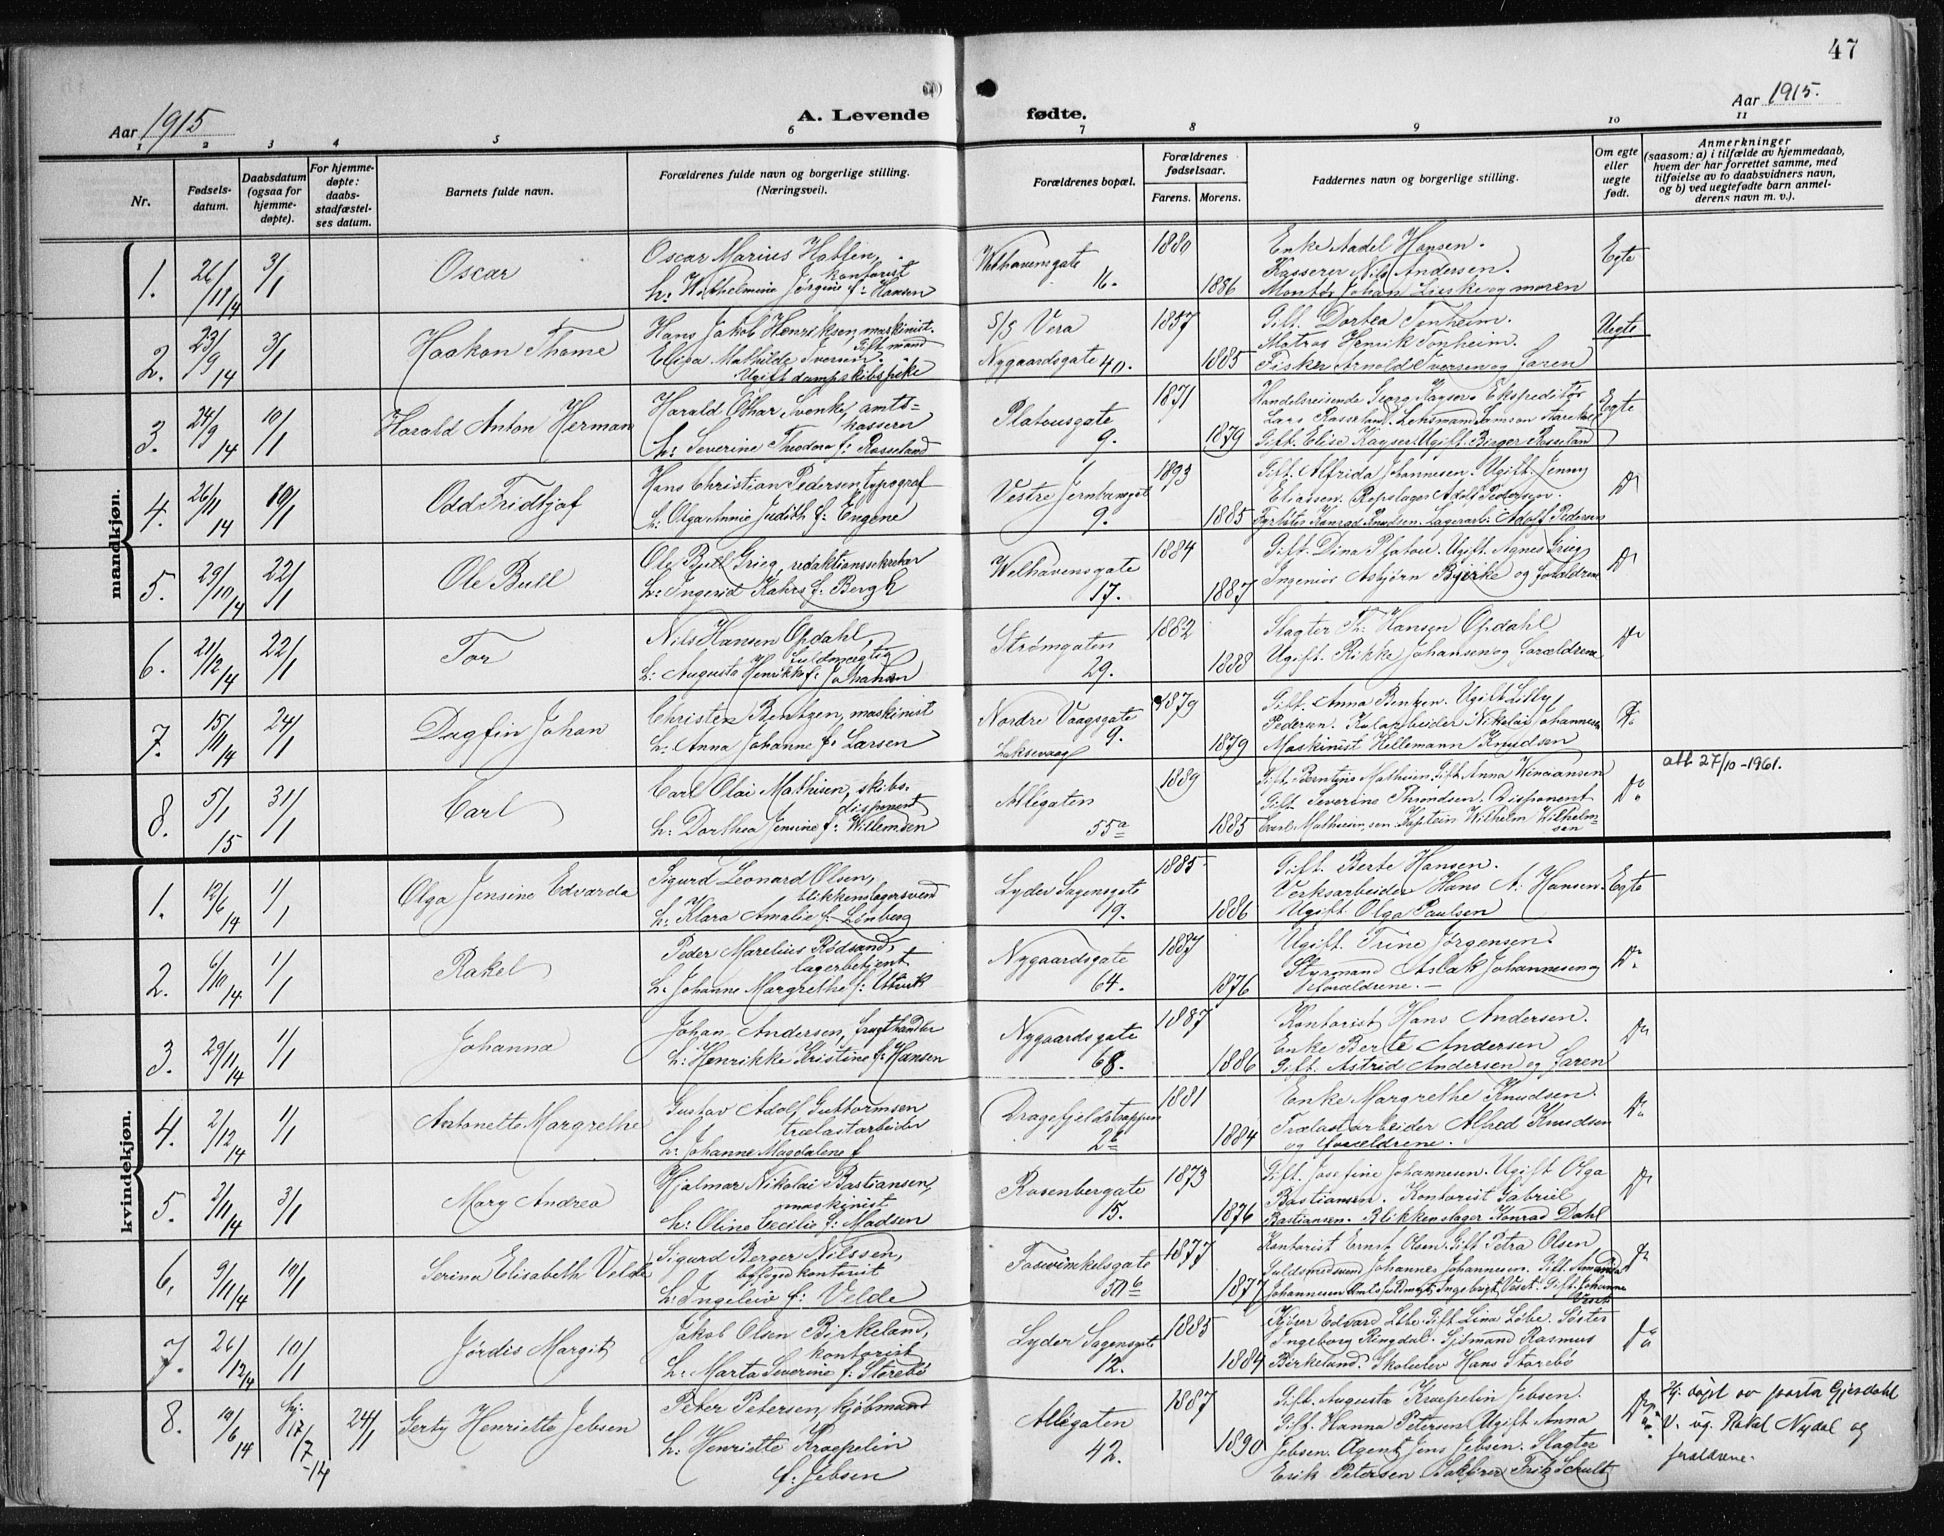 47
Aar 1915
A. Levende fødte.
Aar 1915.
1 2 3 4 5 6 7 8 9 10 11
Nr.
Fødsels-
datum.
Daabsdatum
(ogsaa for
hjemme-
døpte).
For hjemme-
døpte:
daabs-
stadfæstel-
ses datum.
Barnets fulde navn.
Forældrenes fulde navn og borgerlige stilling.
(Næringsvei).
Forældrenes bopæl.
Forældrenes
fødselsaar.
Farens. Morens.
Faddernes navn og borgerlige stilling.
Om egte
eller
uegte
født.
Anmerkninger
(saasom: a) i tilfælde av hjemmedaab,
hvem der har forrettet samme, med
tilføielse av to daabsvidners navn,
og b) ved uegtefødte barn anmel-
derens navn m. v.).
mandkjøn.
1. 26/11/14 3/1 Oscar
Oscar Marius
kontorist
h: Wilhelmine Jörgine f: Hansen
Welhavensgate
16.
1880
1886
Enke Aadel Hansen.
Kasserer Nils Andersen.
Montör Johan Lieske og moren
Egte
2. 23/9 14 3/1 Haakon Thome
Hans Jakob Henriksen, maskinist.
Gift mand
Elisa Mathilde Iversen.
Ugift dampskibspike
S/S Vera
Nygaardsgate 40.
1857
1885
Gift. Dortea Tonheim.
Matros Henrik Tonheim.
Fisker Arnold Iversen og faren
Uegte
3. 24/9 14 10/1 Harald Anton Herman
Harald Othar Svenke, amts=
kasserer
h: Severine Theodora f: Rosseland
Platousgate
9.
1871
1879
Handelsreisende Georg Kayser. Ekspeditör
Lars Rosseland. Lensmand Samson
Gift. Elise Kayser. Ugift. Birger Rosseland
Egte
4. 26/11 14 10/1 Odd Fridtjof
Hans Christian Pedersen, typograf
h: Olga Annie Judith f: Engene
Vestre Jernbanegat
9.
1893
1885
Gift. Alfrida Johannesen. Ugift. Jenny
Eliassen. Repslager Adolf Pedersen.
Fyrböter Konrad Knudsen. Lagerarb: Adolf Pedersen
Do
5. 29/10/14 22/1 Ole Bull
Ole Bull Grieg, redaktionssekretær
h: Ingerid Kahrs f: Bergh
Welhavensgate
17.
1884
1887
Gift. Dina Platou. Ugift. Agnes Grieg
Ingeniör Asbjörn Byerke og forældrene
Do
6. 21/12/14 22/1 Tor
Nils Hansen Opdahl,
fuldmægtig
h: Augusta Henrikke f: Johansen
Strømgaten
29.
1882
1888
Slagter Th: Hansen Opdahl
Ugift. Rikke Johansen og forældrene
Do
7. 15/11/14 24/1 Dagfin Johan
Christen Bentzen, maskinist
h: Anna Johanne f: Larsen
Nordre Vaagsgate
9.
Laksevaag
1879
1879
Gift. Anna Bentzen. Ugift Lilly
Pedersen. Kularbeider Nikolai Johannesen
Maskinist Hellemann Knudsen
Do
8. 5/1 15 31/1 Carl
Carl Olai Mathisen, skibs-
disponent
h: Dorthea Jensine f: Willemsen
Allégaten
55a
1889
1885
Gift. Berntine Mathisen. Gift Anna
Gift Severine Thundsen. Disponent
Carl Mathisen, sen. Kaptein Wilhelm Wilhelm-
sen
Do
att. 27/10-1961.
kvindekjøn.
1. 12/6/14 1/1 Olga Jensine Edvarda
Sigurd Leonard Olsen,
blikkenslagersvend
h: Klara Amalie f: Lönberg
Lyder Sagensgate
19.
1885
1886
Gift. Berte Hansen.
Verksarbeider Hans A: Hansen.
Ugift. Olga Paulsen
Egte
2. 6/10/14 1/1 Rakel
Peder Marelius Rødsand,
lagerbetjent
h: Johanne Margrethe f: Utvik
Nygaardsgate
64.
1887
1876
Ugift. Trine Jørgensen.
Styrmand Aslak Johannesen og
forældrene. —
Do
3. 29/11/14 1/1 Johanna
Johan Andersen, frugthandler
h: Henrikke Kristine f: Hansen
Nygaardsgate
68.
1887
1886
Kontorist Hans Andersen.
Enke Berte Andersen
Gift. Astrid Andersen og faren
Do
4. 2/12/14 1/1 Antonette Margrethe
Gustav Adolf Guttormsen
trælastarbeider
h: Johanne Magdalene f
Dragefjeldstrappen
2b
1881
1884
Enke Margrethe Knudsen.
Trælastarbeider Alfred Knudsen
og forældrene.
Do
5. 3/11/14 3/1 Mary Andrea
Hjalmar Nikolai Bastiansen,
maskinist
h: Oline Cecilie f: Madsen
Rosenbergate
15.
1873
1876
Gift. Josefine Johannesen. Ugift Olga
Bastiansen. Kontorist Gabriel
Bastiansen. Blikkenslager Konrad Dahl
Do
6. 9/11/14 10/1 Serina Elisabeth Velde
Sigurd Berger Nilssen,
byfogedkontorist
h: Ingeleiv f: Velde
Foswinkelsgate
50b
1877
1877
Kontorist Ernst Olsen. Gift Petra Olsen
Guldsmedsvend Johannes Johannesen. Gift. Amanda
Johannesen Amtsfuldmegt. Ingebrigt Vest. Gift. Johanne
Vest
Do
7. 26/12/14 10/1 Jördis Margit
Jakob Olsen Birkeland,
kontorist
h: Marta Severine f: Storebö
Lyder Sagensgate
12.
1885
1884
Kjörer Edvard Löbe. Gift Lina Löbe. Söster
Ingeborg Ringdal. Sjömand Rasmus
Birkeland. Skoleelev Hans Storebö
Do
8. 19/6 14 hj: 17/7-14 24/1 Gerty Henriette Jebsen
Peter Petersen, kjöbmand
h: Henriette Kraepelin
f: Jebsen
Allégaten
42.
1887
1890
Gift. Augusta Kraepelin Jebsen.
Gift. Hanna Petersen Ugift Anna
Jebsen. Agent Jens Jebsen. Slagter
Erik Petersen Fritz Schult
Do
Hj. døpt av pastor Gjesdahl
V. ug. Rakel Nydal og
forældrene.